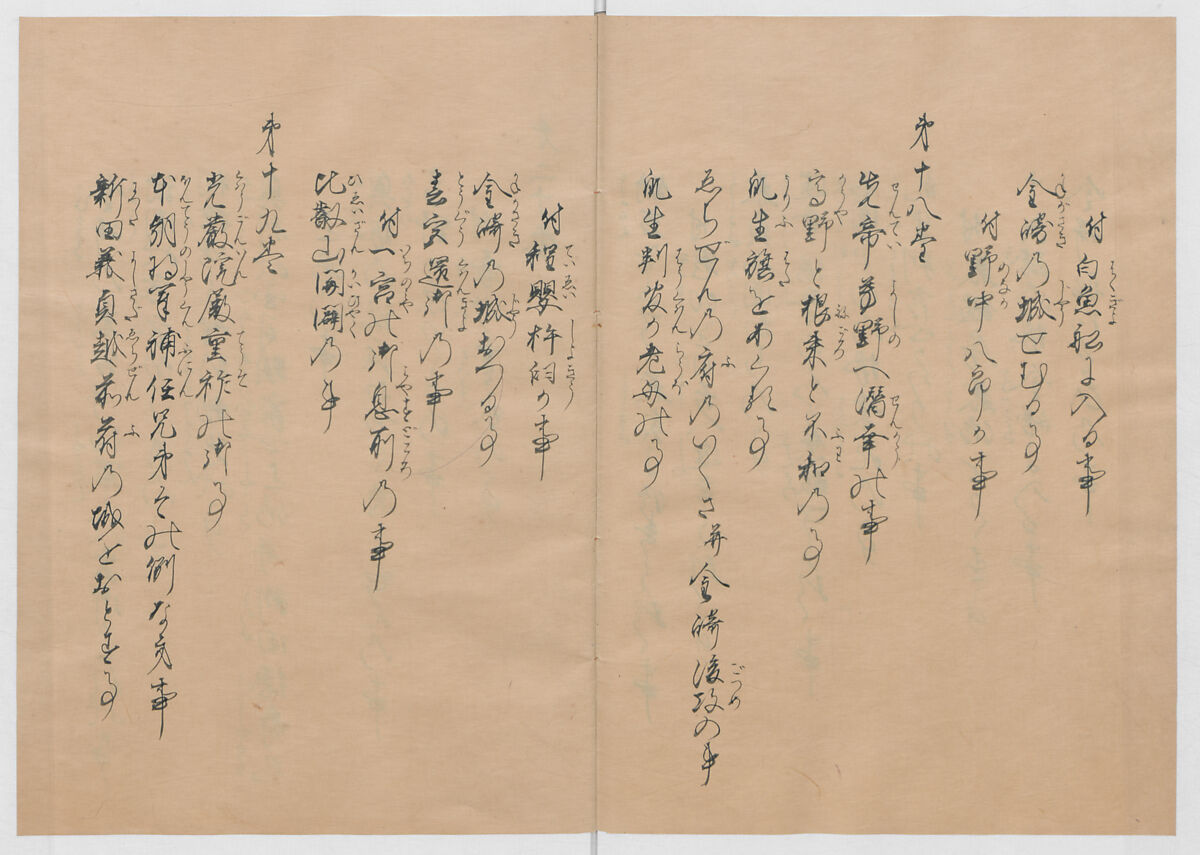 付白魚船に入る事
金崎の城せむる事
付野中八郎か事
第十八巻
先帝芳野へ潜幸の事
高野と根来と不和の事
瓜生旗をあくる事
ゑちぜんの府のいくさ并金崎後攻の事
瓜生判官か老母の事
付程嬰杵臼か事
金崎の城おつる事
春宮還御の事
付一宮の御息所の事
比叡山開闢の事
第十九巻
光厳院殿重祚の御事
本朝将軍補任兄弟その例なき事
新田義貞越前府の城をおとす事